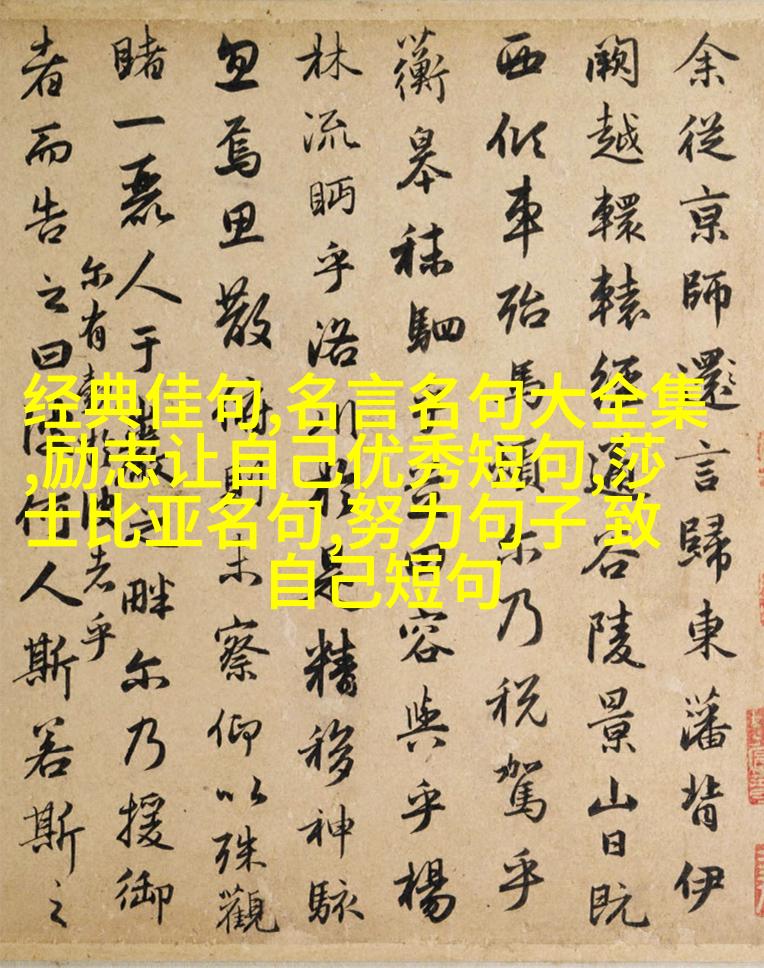 经典佳句,名言名句大全集
,励志让自己优秀短句,莎
士比亚名句,努力句子 致
自己短句
余從京師還言歸東藩背伊
闕越轘轅經通谷陵景山日既
西傾車殆馬煩尔乃税駕乎
蘅皋秣駟乎芝田容與乎楊
林流眄乎洛川於是精移神駭
忽焉思散俯則未察仰以殊觀
睹一麗人于巖之畔尔乃援御
者而告之曰彼何人斯若斯之
尔有覿於彼者乎